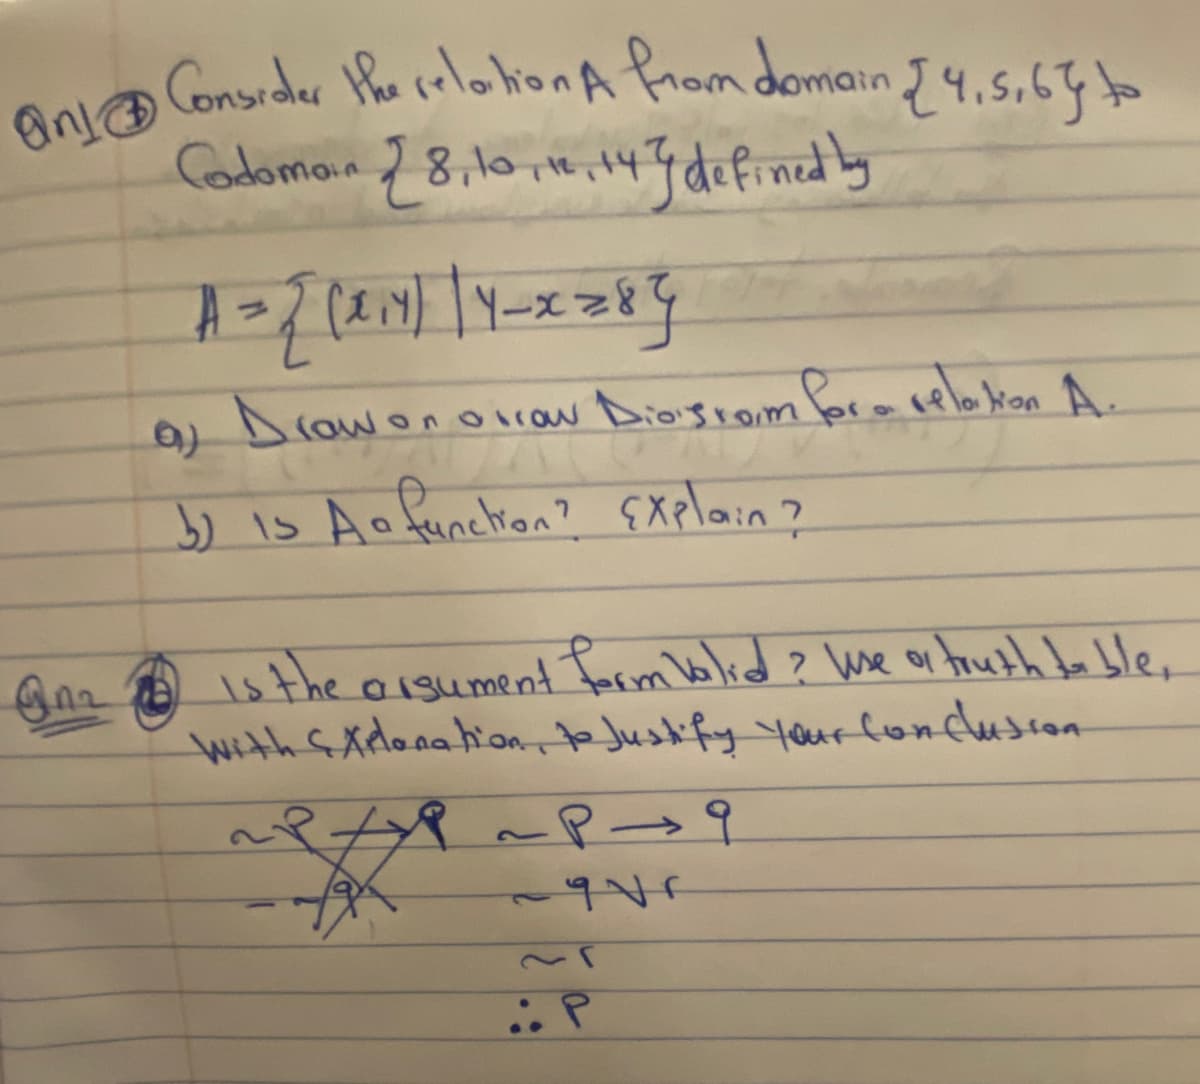 Qn1 Consider the relation A from domain {4,5,6} to
Codomain {8,10,12,14} defined by
A = {(x,y) | y-x ≥ 8}
a) Draw on arraw Diagram for a relation A.
b) is A a function? Explain?
Qn2 is the argument form Valid? Use a truth table,
with Explanation, to Justify your Conclusion
~P → q
~q ∨ r
~r
∴ P